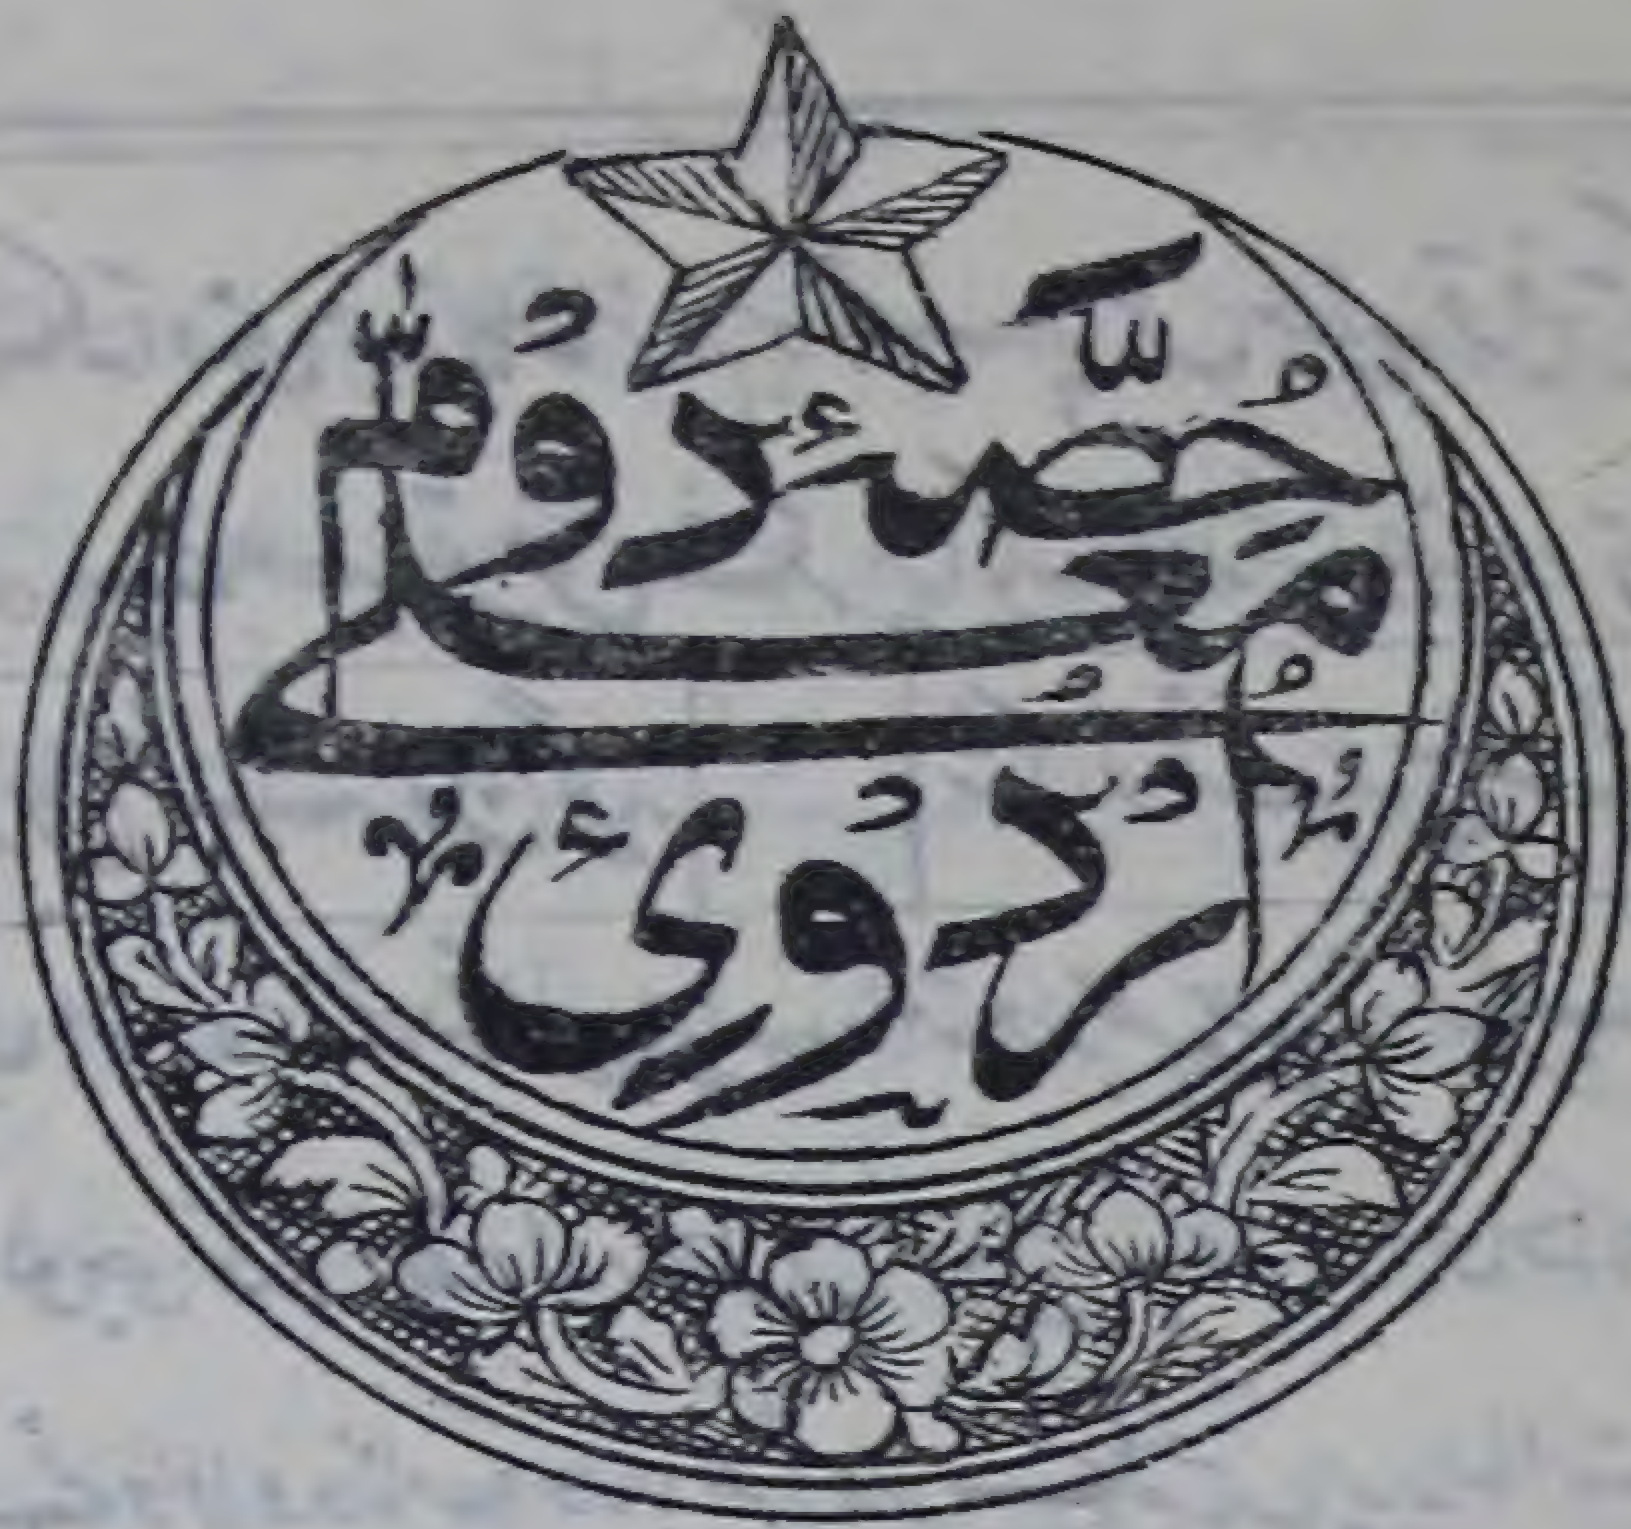 اُردُوئ
معلّٰے
حصّۂ دُوم